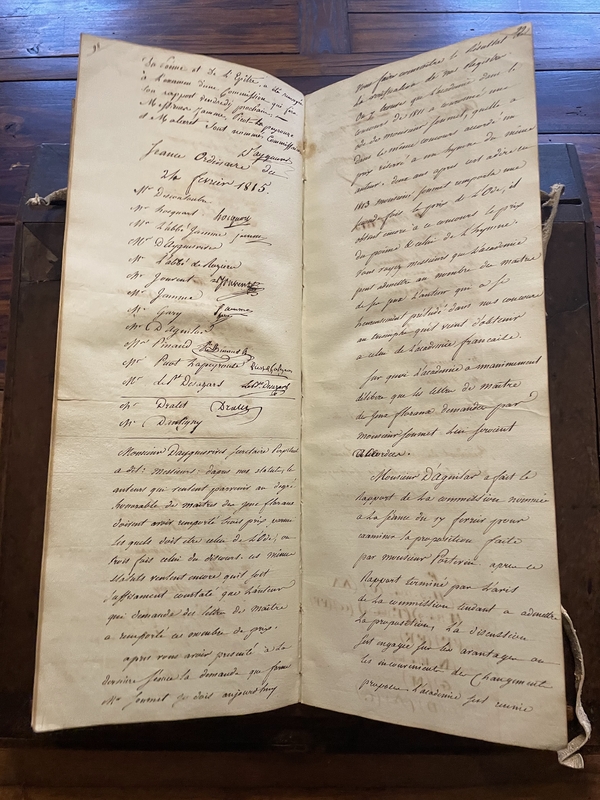 91
La forme et de l'Epître, a été renvoyé
à l'examen d'une Commission qui fera
son rapport vendredi prochain,
Messieurs jamme, Picot Lapeyrouse
et Malaret sont nommés Commissaires
D'aygues
Seance Ordinaire du
24 fevrier 1815.
Mr Descouloubre
Mr hocquart hocquart
Mr L'abbé Jamme jamme
Mr D'Ayguesvives
Mr L'abbé de
Mr Jouvent Jouvent
Mr Jamme Jamme
Mr Gary Gary
Mr D'Aguilar
Mr Pinaud Pinaud
Mr Picot Lapeyrouse
Mr de St Desazars
Mr Dralet Dralet
Mr Dantigny
Monsieur Dayguesvives Secretaire Perpétuel
a dit: messieurs: d'apres nos statuts, les
auteurs qui veulent parvenir au degré
honorable de maitres des jeux floraux
doivent avoir remporté trois prix
lesquels doit etre celui de l'Ode, ou
trois fois celui du discours. ces même
statuts veulent encore qu'il soit
suffisament constaté que l'auteur
qui demande des lettres de maître
a remporté ce nombre de prix.
apres vous avoir presenté à la
derniere séance la demande que forme
Mr Soumet je dois aujourd'huy
92
vous faire connoitre le résultat de
la verification de nos registres.
On le trouve que l'académie dans le
concours de 1811 a couronné une
ode de monsieur Soumet, qu'elle a
dans le même concours accordé un
prix réservé à un hymne du même
auteur, deux ans apres c'est adire en
1813 monsieur Soumet remporta une
seconde fois le prix de l'Ode, et
obtint encore a ce concours le prix
du poëme & celui de l'hymne.
Vous voyez messieurs que l'académie
peut admettre au nombre de maitres
de ses jeux l'auteur qui a si
heureusement préludé dans nos concours
au triomphe qui vient d'obtenir
a celui de l'académie francaise.
Sur quoi l'académie a unanimement
délibéré que les lettres de maître
des jeux floraux demandées par
monsieur Soumet lui seroient
accordées.
Monsieur D'Aguilar a fait le
rapport de la commission nommée
a la séance du 17 fevrier pour
examiner la proposition faite
par monsieur Poitevin. apres ce
Rapport terminé par l'avis
de la commission tendant a admettre
la proposition. La discussion
s'est engagée sur les avantages ou
les inconvenients du Changement
proposé. L'académie s'est reunie